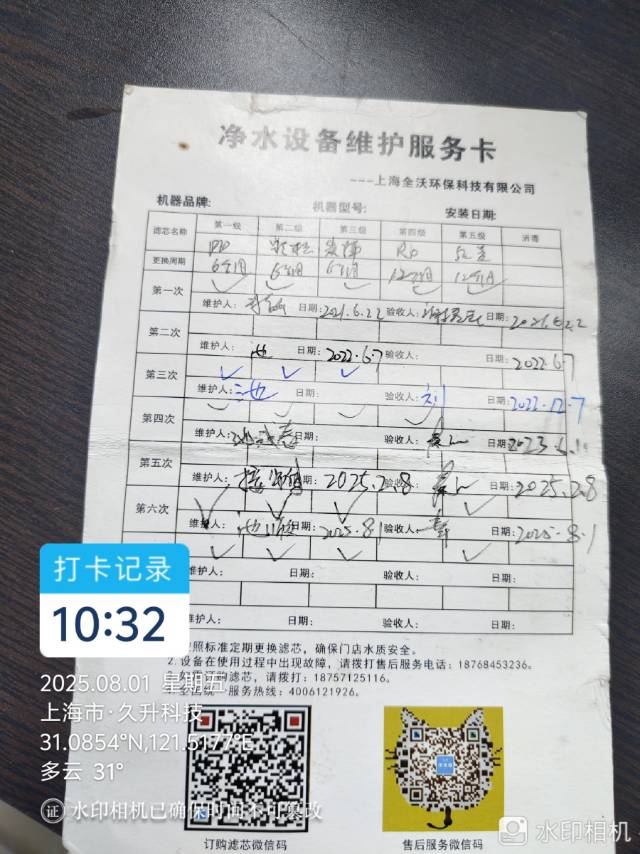 净水设备维护服务卡
---上海全沃环保科技有限公司
机器品牌: 机器型号: 安装日期:
滤芯名称 第一级 第二级 第三级 第四级 第五级 消毒
PP RO
更换周期 6个月 6个月 6个月 12个月 12个月
第一次
维护人: 日期: 2021.6.22 验收人: 日期: 2021.6.22
第二次
维护人: 日期: 2022.6.7 验收人: 日期: 2022.6.7
第三次
维护人: 日期: 验收人: 刘 日期: 2022.12.7
第四次
维护人: 日期: 验收人: 日期: 2023.6.1
第五次
维护人: 2025.2.8 验收人: 日期: 2025.2.8
第六次
维护人: 2025.8.1 验收人: 日期: 2025.8.1
维护人: 日期: 验收人: 日期:
维护人: 日期: 验收人: 日期:
按照标准定期更换滤芯,确保门店水质安全。
2.设备在使用过程中出现故障,请拨打售后服务电话:18768453236。
订购滤芯,请拨打:18757125116。
服务热线:4006121926。
订购滤芯微信码
售后服务微信码
打卡记录
10:32
2025.08.01 星期五
上海市·久升科技
31.0854°N,121.5177°E
多云 31°
证 水印相机已确保时间不可篡改
水印相机